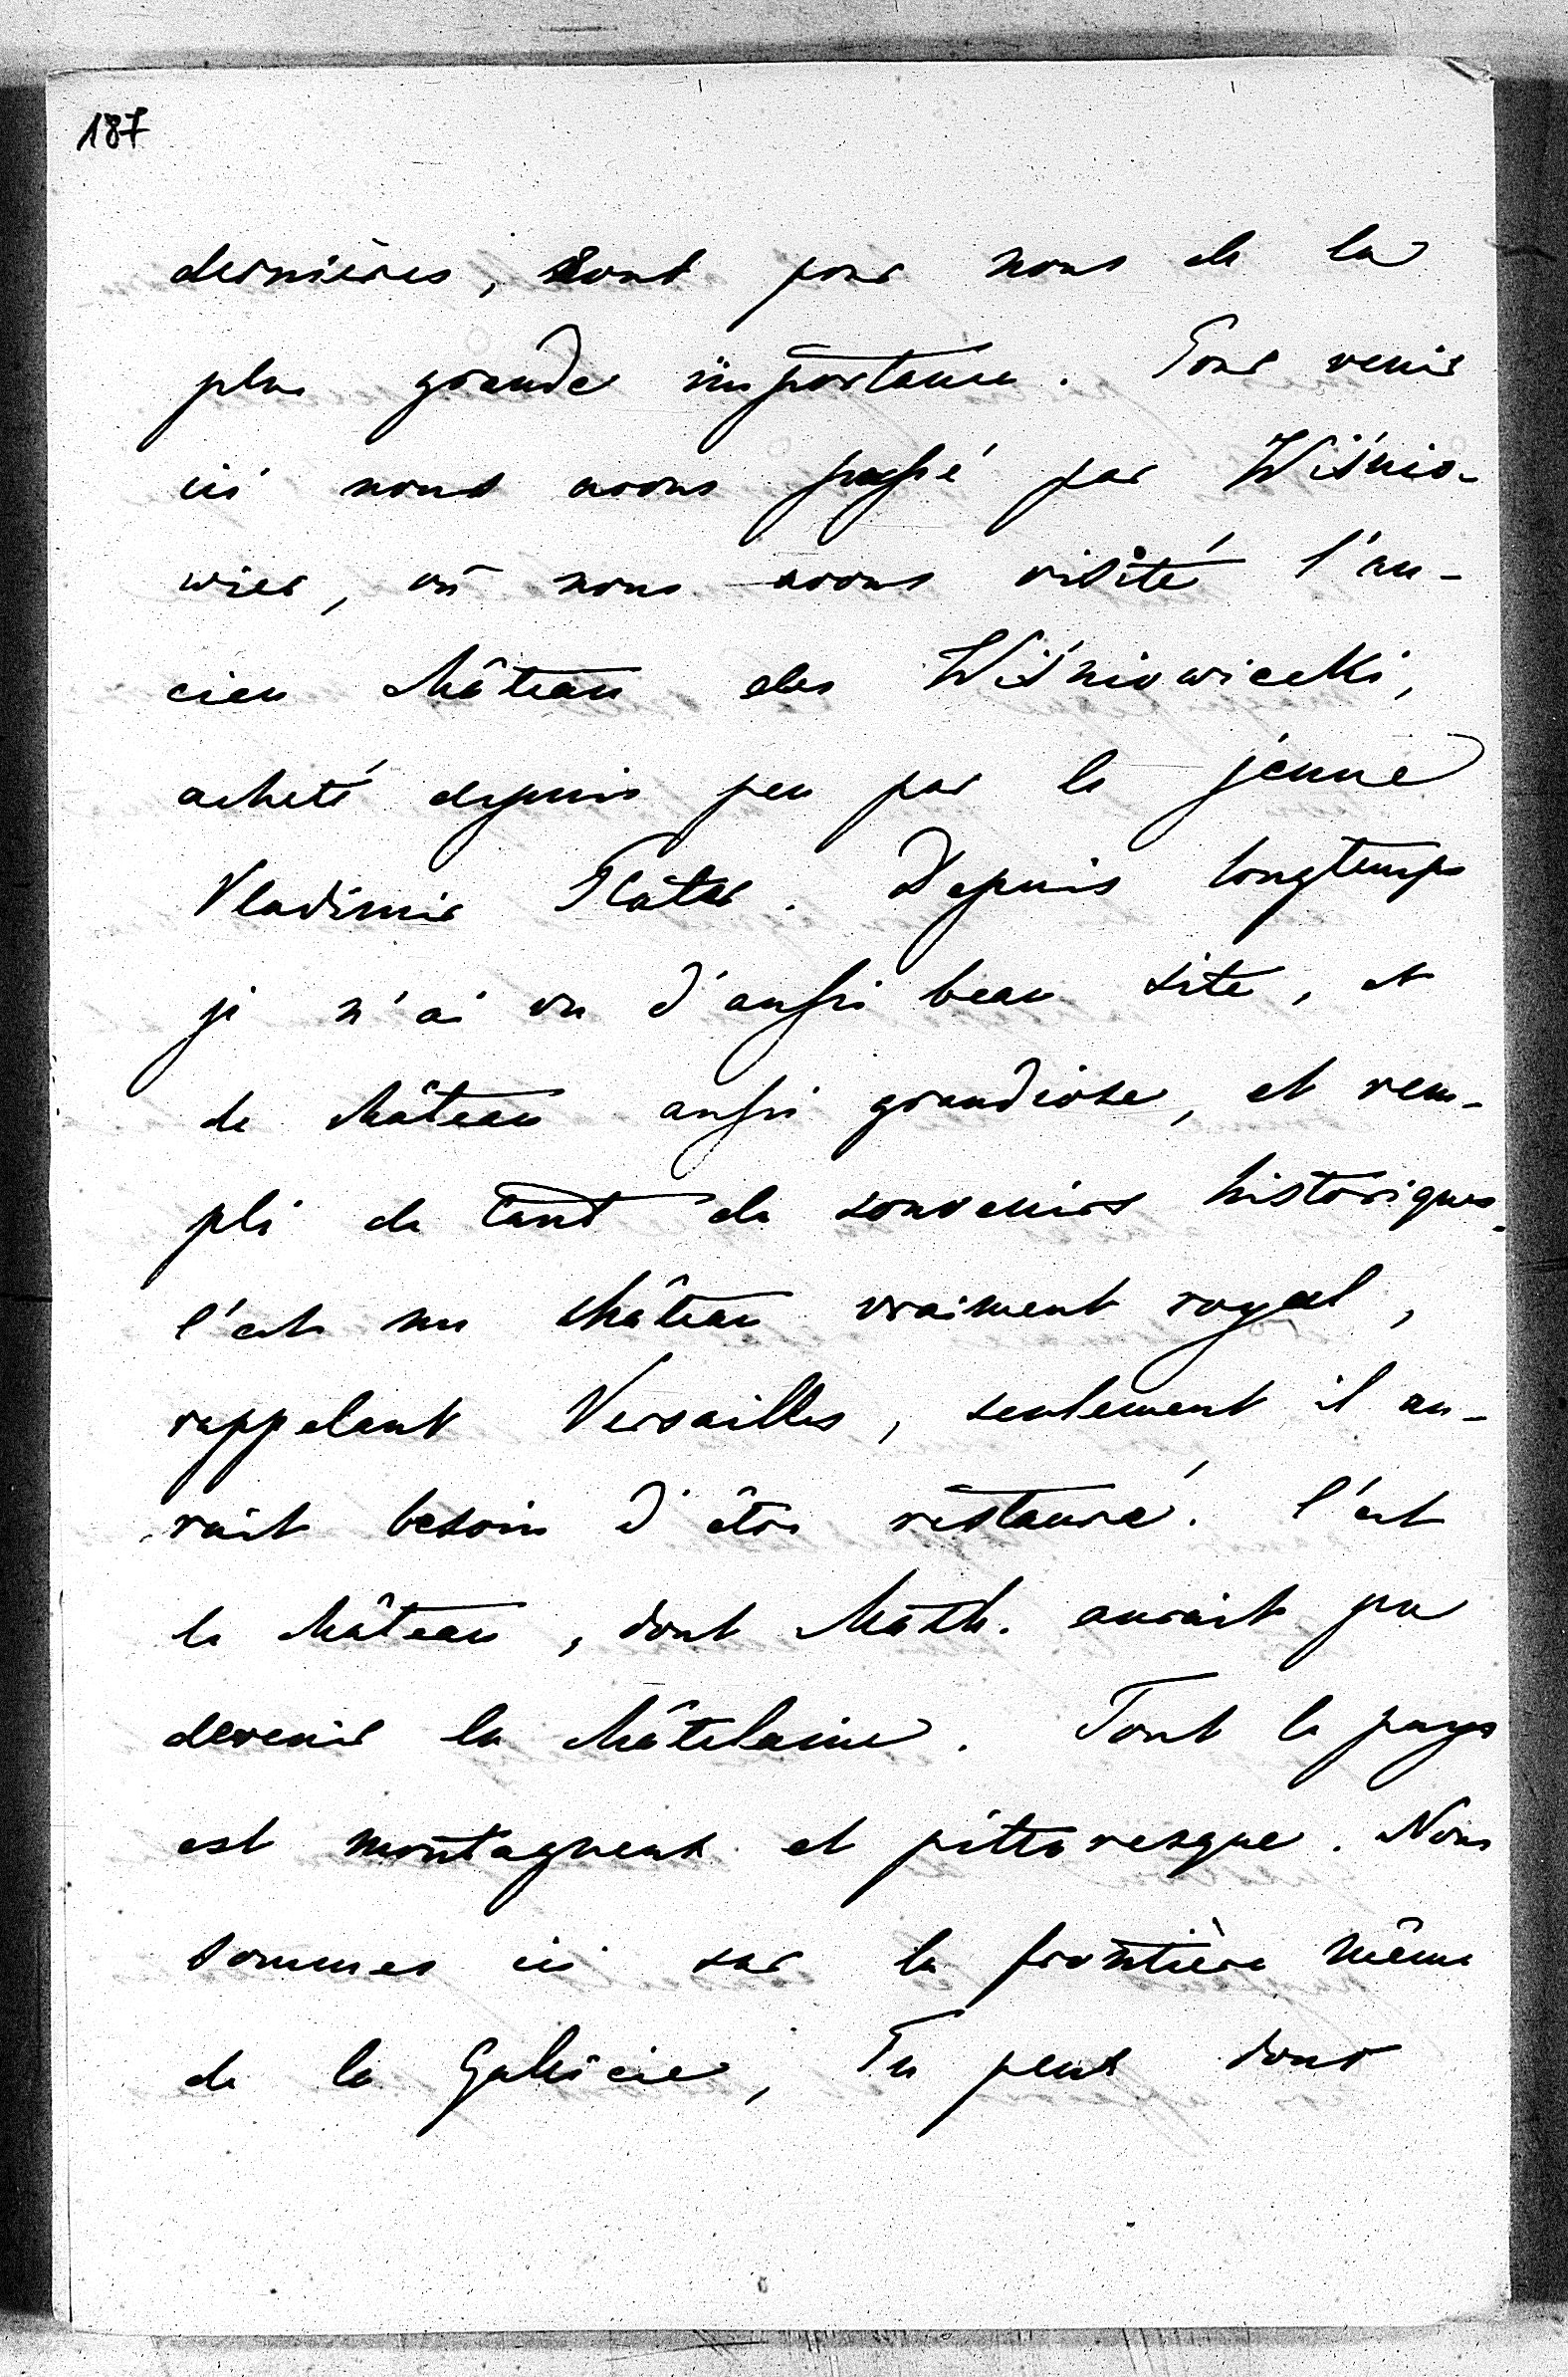 187
dernières, sont pour nous de la
plus grande importance. Pour venir
ici nous avons passé par Wiśnio-
wiec, où nous avons visité l'an-
cien château des Wiśniowiecki,
acheté depuis peu par le jeune
Vladimir Plater. Depuis longtemps
je n'ai vu d'aussi beau site, et
de château aussi grandiose, et rem-
pli de tant de souvenirs historiques.
C'est un château vraiment royal,
rappelant Versailles, seulement il au-
rait besoin d'être restauré. C'est
le château, dont Math. aurait pu
devenir la châtelaine. Tout le pays
est montagneux et pittoresque. Nous
sommes ici sur la frontière même
de la Galicie, Tu peux donc